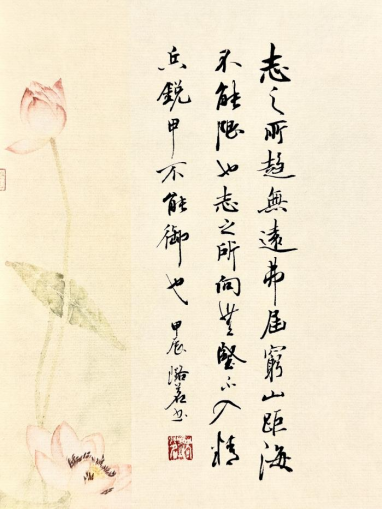 志之所趨無遠弗屆窮山距海
不能限也志之所向無堅不入精
兵銳甲不能御也
甲辰 潞若书